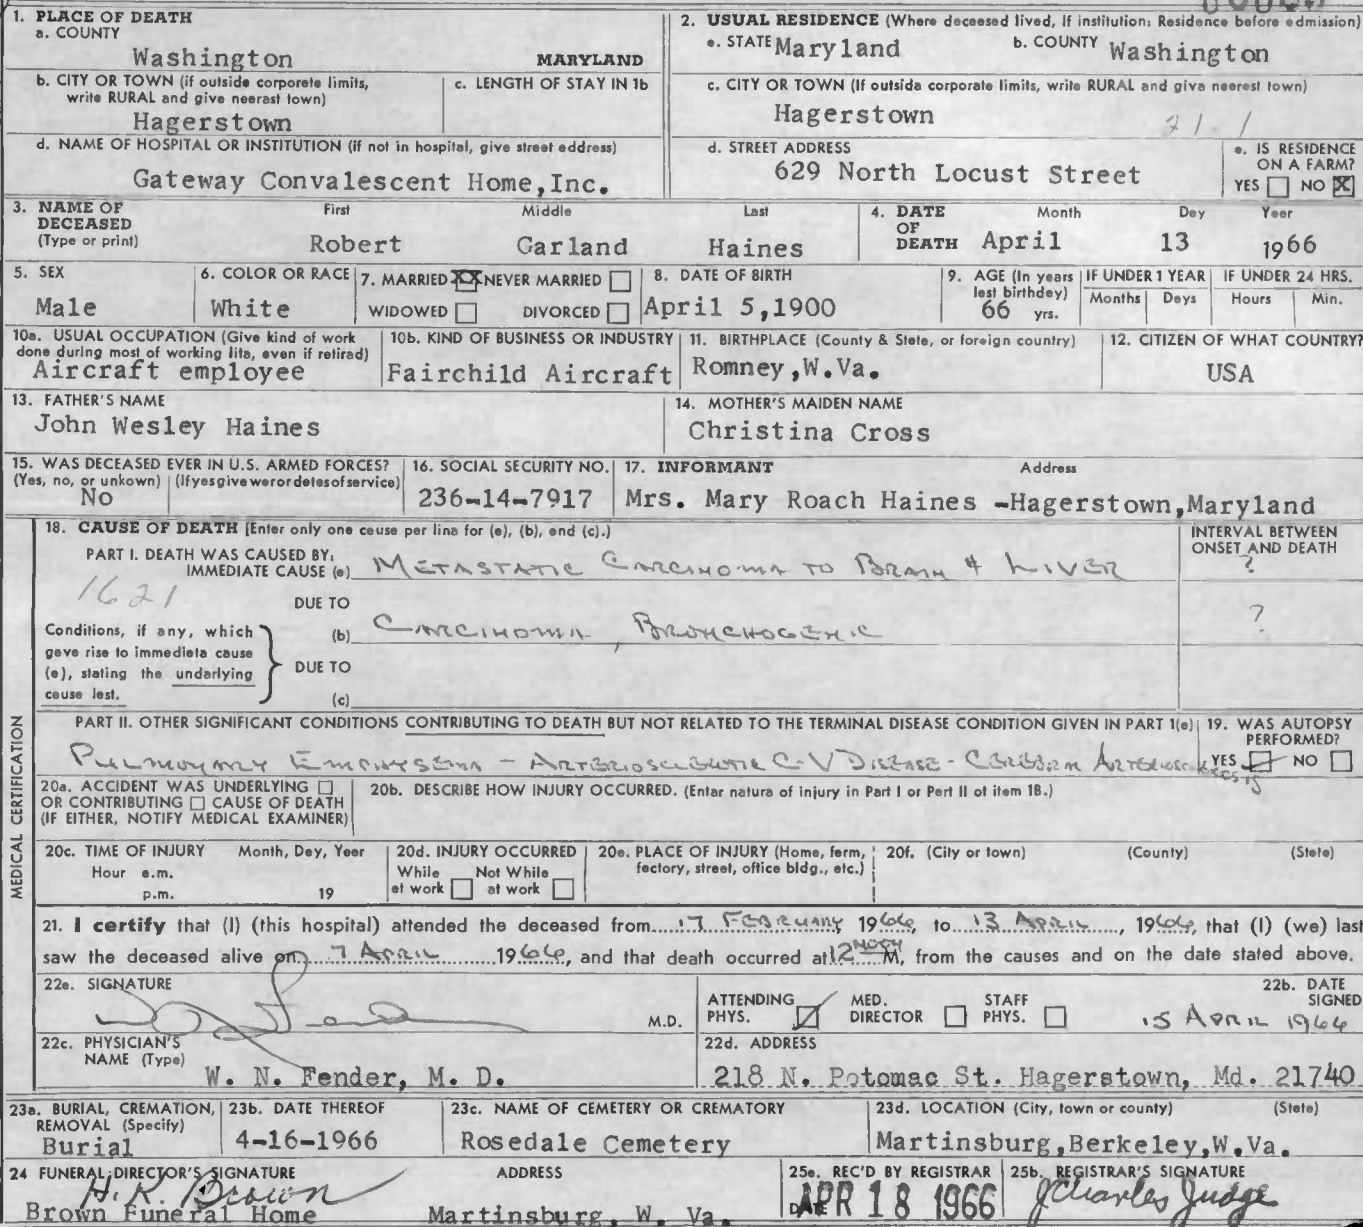 1. PLACE OF DEATH
a. COUNTY
Washington MARYLAND
b. CITY OR TOWN (if outside corporate limits, write RURAL and give nearest town)
Hagerstown
c. LENGTH OF STAY IN 1b
d. NAME OF HOSPITAL OR INSTITUTION (if not in hospital, give street address)
Gateway Convalescent Home,Inc.
2. USUAL RESIDENCE (Where deceased lived, If institution: Residence before admission)
a. STATE Maryland b. COUNTY Washington
c. CITY OR TOWN (If outside corporate limits, write RURAL and give nearest town)
Hagerstown
21-1
d. STREET ADDRESS
629 North Locust Street
e. IS RESIDENCE ON A FARM?
YES NO X
3. NAME OF DECEASED (Type or print)
First Middle Last
Robert Garland Haines
4. DATE OF DEATH
Month Day Year
April 13 1966
5. SEX
Male
6. COLOR OR RACE
White
7. MARRIED XX NEVER MARRIED
WIDOWED DIVORCED
8. DATE OF BIRTH
April 5,1900
9. AGE (In years last birthday)
66 yrs.
IF UNDER 1 YEAR
Months Days
IF UNDER 24 HRS.
Hours Min.
10a. USUAL OCCUPATION (Give kind of work done during most of working life, even if retired)
Aircraft employee
10b. KIND OF BUSINESS OR INDUSTRY
Fairchild Aircraft
11. BIRTHPLACE (County & State, or foreign country)
Romney,W.Va.
12. CITIZEN OF WHAT COUNTRY?
USA
13. FATHER'S NAME
John Wesley Haines
14. MOTHER'S MAIDEN NAME
Christina Cross
15. WAS DECEASED EVER IN U.S. ARMED FORCES?
(Yes, no, or unkown) (If yes give war or dates of service)
No
16. SOCIAL SECURITY NO.
236-14-7917
17. INFORMANT Address
Mrs. Mary Roach Haines -Hagerstown,Maryland
MEDICAL CERTIFICATION
18. CAUSE OF DEATH [Enter only one cause per line for (a), (b), and (c).]
INTERVAL BETWEEN ONSET AND DEATH
PART I. DEATH WAS CAUSED BY:
IMMEDIATE CAUSE (a) METASTATIC CARCINOMA TO BRAIN & LIVER ?
1621
DUE TO
(b) CARCINOMA, BRONCHOGENIC ?
Conditions, if any, which gave rise to immediate cause (a), stating the underlying cause last.
DUE TO
(c)
PART II. OTHER SIGNIFICANT CONDITIONS CONTRIBUTING TO DEATH BUT NOT RELATED TO THE TERMINAL DISEASE CONDITION GIVEN IN PART 1(a)
PULMONARY EMPHYSEMA - ARTERIOSCLEROTIC C-V DISEASE - CEREBRAL ARTERIOSCLEROSIS
19. WAS AUTOPSY PERFORMED?
YES NO
20a. ACCIDENT WAS UNDERLYING
OR CONTRIBUTING CAUSE OF DEATH
(IF EITHER, NOTIFY MEDICAL EXAMINER)
20b. DESCRIBE HOW INJURY OCCURRED. (Enter nature of injury in Part I or Part II of item 18.)
20c. TIME OF INJURY Month, Day, Year
Hour a.m.
p.m. 19
20d. INJURY OCCURRED
While at work Not While at work
20e. PLACE OF INJURY (Home, farm, factory, street, office bldg., etc.)
20f. (City or town) (County) (State)
21. I certify that (I) (this hospital) attended the deceased from 17 FEBRUARY 1966, to 13 APRIL, 1966, that (I) (we) last
saw the deceased alive on 7 APRIL 1966, and that death occurred at 12 NOON M, from the causes and on the date stated above.
22a. SIGNATURE
M.D.
ATTENDING PHYS. MED. DIRECTOR STAFF PHYS.
22b. DATE SIGNED
15 APRIL 1966
22c. PHYSICIAN'S NAME (Type)
W. N. Fender, M. D.
22d. ADDRESS
218 N. Potomac St. Hagerstown, Md. 21740
23a. BURIAL, CREMATION, REMOVAL (Specify)
Burial
23b. DATE THEREOF
4-16-1966
23c. NAME OF CEMETERY OR CREMATORY
Rosedale Cemetery
23d. LOCATION (City, town or county) (State)
Martinsburg,Berkeley,W.Va.
24 FUNERAL DIRECTOR'S SIGNATURE ADDRESS
H. K. Brown
Brown Funeral Home Martinsburg, W. Va.
25a. REC'D BY REGISTRAR
DATE APR 18 1966
25b. REGISTRAR'S SIGNATURE
J Charles Judge